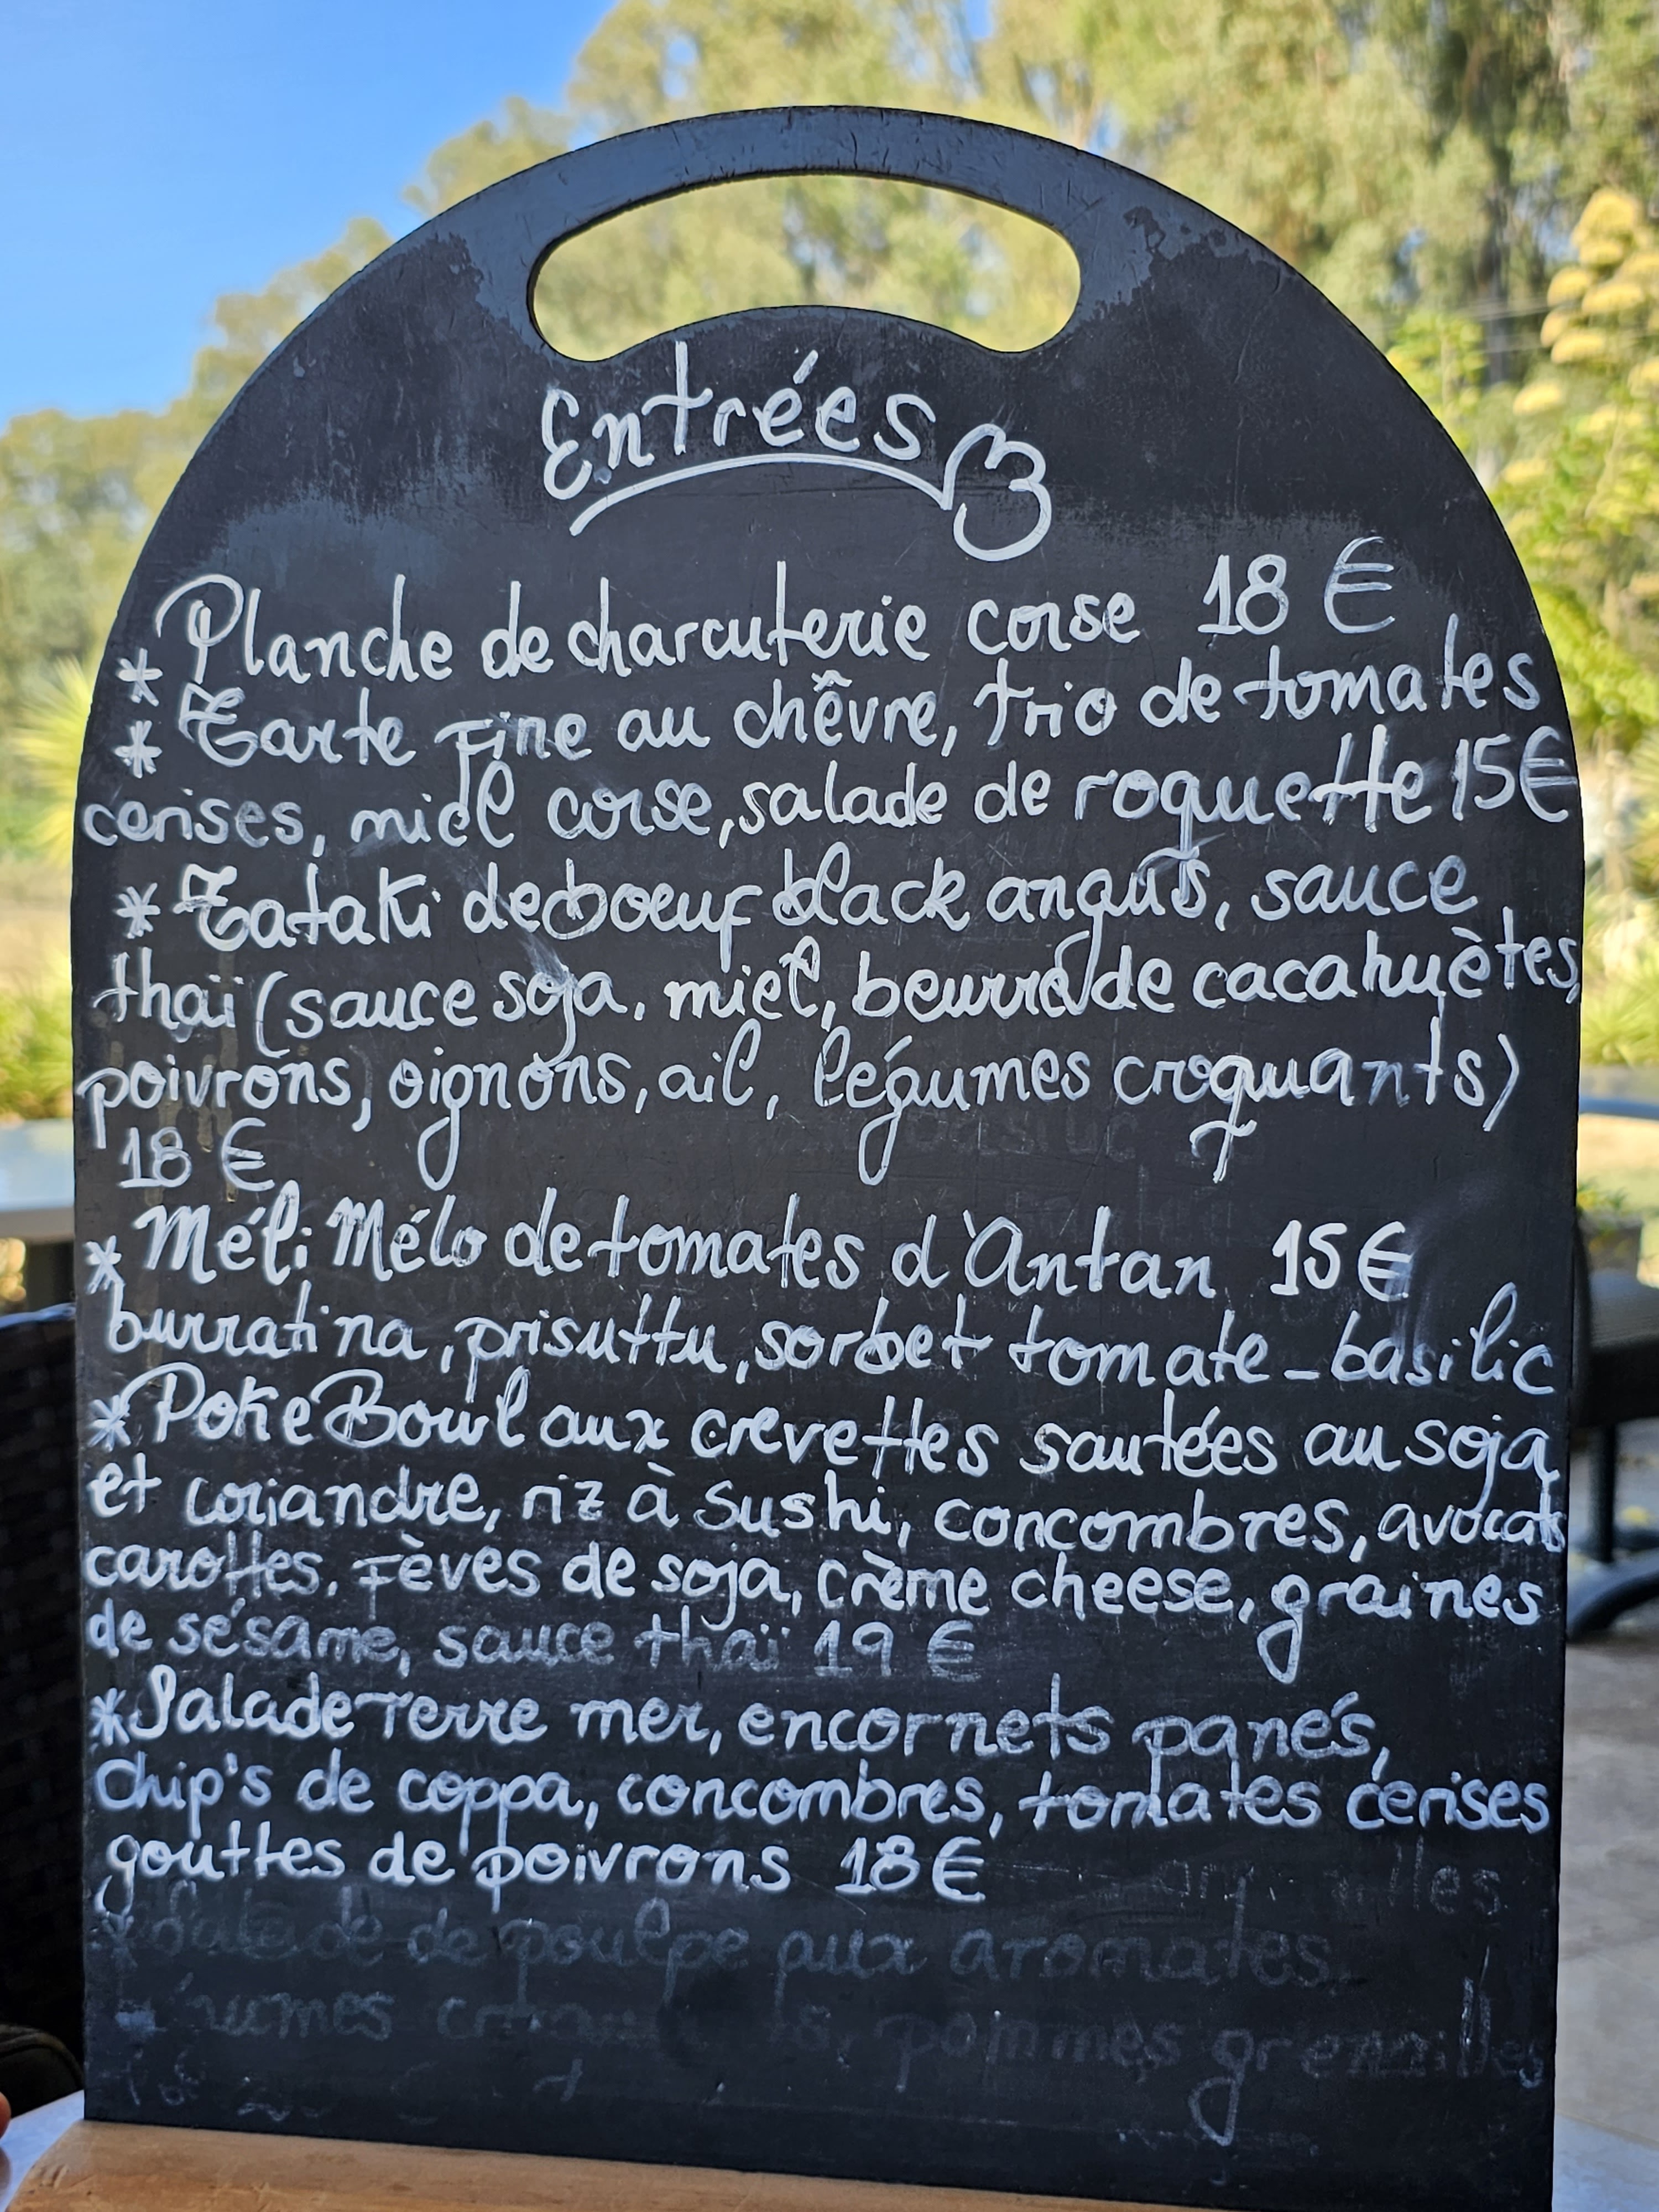 Entrées
* Planche de charcuterie corse 18 €
* Tarte Fine au chêvre, trio de tomates
cerises, miel corse, salade de roquette 15€
* Tataki de boeuf black angus, sauce
thaï (sauce soja, miel, beurre de cacahuètes,
poivrons, oignons, ail, légumes croquants)
18 €
* Méli Mélo de tomates d'Antan 15€
burratina, prisuttu, sorbet tomate - basilic
* Poke Bowl aux crevettes sautées au soja
et coriandre, riz à Sushi, concombres, avocats
carottes, Fèves de soja, crème cheese, graines
de sésame, sauce thaï 19 €
* Salade Terre mer, encornets panés,
Chip's de coppa, concombres, tomates cerises
gouttes de poivrons 18€
* Salade de poulpe aux aromates
pommes grenailles